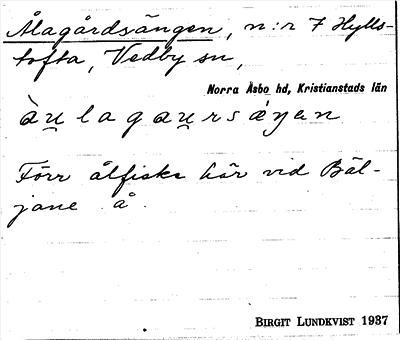 Ålagårdsängen, n:r 7 Hylls-
tofta, Vedby sn,
Norra Åsbo hd, Kristianstads län
àu̯lagau̯rsæ̀ŋan
Förr ålfiske här vid Bäl-
jane å.
BIRGIT LUNDKVIST 1937